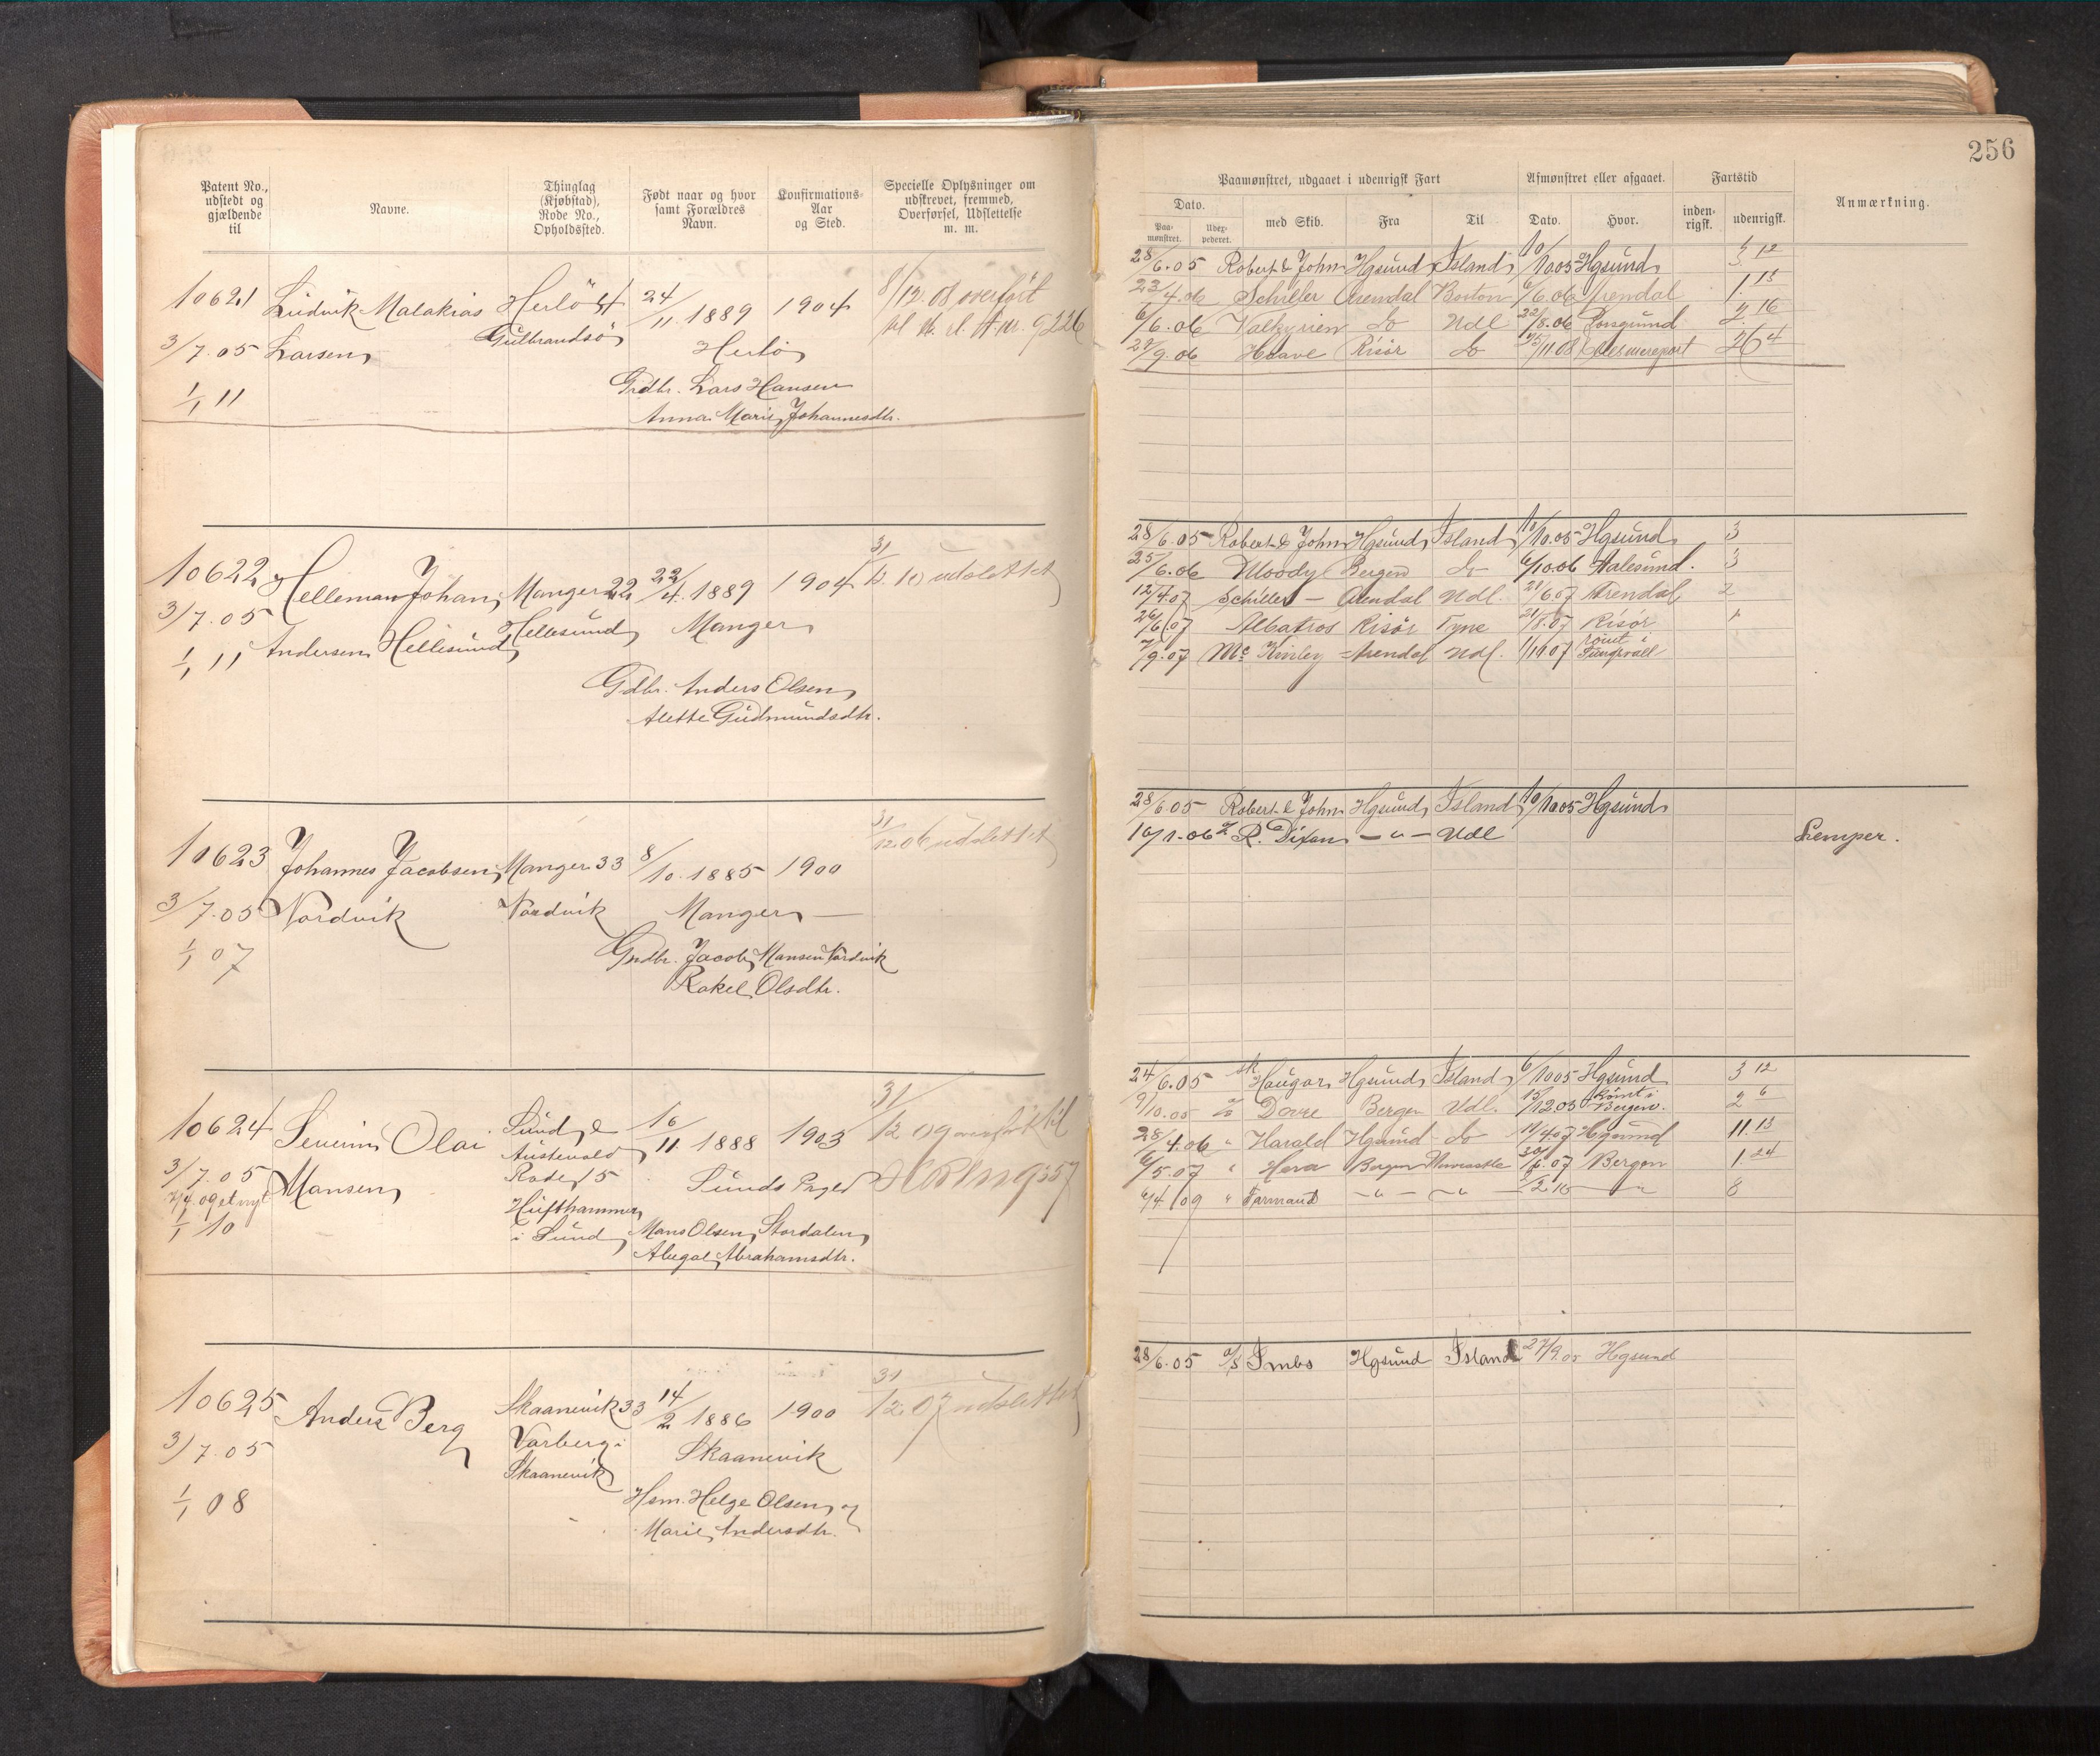 256
Patent No., udstedt og gjældende til
Navne.
Thinglag (Kjøbstad), Rode No., Opholdssted.
Født naar og hvor samt Forældres Navn.
Konfirmations-Aar og Sted.
Specielle Oplysninger om udskrevet, fremmed, Overførsel, Udslettelse m. m.
Paamønstret, udgaaet i udenrigsk Fart
Afmønstret eller afgaaet.
Fartstid
Anmærkning.
Dato.
Paa-mønstret.
Udex-pederet.
med Skib.
Fra
Til
Dato.
Hvor.
inden-rigsk.
udenrigsk.
10621 Ludvik Malakias Herlö 4 24/11 1889 1904 8/12.08 overført
Gulbrandsö til A. nr. 9226
3/7.05 Larsen Herlö
1/1 11 Grdbr. Lars Hansen
Anna Marie Johannesdtr.
28/6.05 Robert & John Hgsund Island 10/10 05 Hgsund 3 12
23/4.06 Schiller Arendal Boston 6/6.06 Arendal 1 13
6/6.06 Valkyrien do Udl 22/8.06 Porsgrund 2 16
29/9.06 Haave Risör do 11.08 26 4
10622 Helleman Johan Manger 22 22/4 1889 1904 31/12 10 udslettet
3/7.05 Hellesund Manger
1/1 11 Andersen Hellesund
Gdbr. Anders Olsen
Alette Gudmundsdtr.
28/6.05 Robert & John Hgsund Island 10/10.05 Hgsund 3
25/6.06 Moody Bergen do 6/10.06 Aalesund. 3
12/4.07 Schiller Arendal Udl. 21/6.07 Arendal 2
26/6.07 Albatros Risör Tyne 21/8.07 Risör
7/9.07 Mc Kinley Arendal Udl. 1/11 07 römt i
10623 Johannes Jacobsen Manger 33 8/10. 1885 1900 31/12 06 udslettet
3/7.05 Nordvik Nordvik Manger
1/1 07 Grdbr. Jacob Mansen Nordvik
Rakel Olsdtr.
28/6.05 Robert & John Hgsund Island 10/10 05 Hgsund
10/1.06 R. Dixon — " — Udl Lemper.
10624 Severin Olai Sund & 16/11. 1888 1903 31/12 09 overført til
Austevold
3/7.05 Mansen Rode 15 Sunds Prgld 9357
7/4 09 et nyt Hufthammer
1/1 10 i Sund Mans Olsen Stordalen
Abegal Abrahamsdtr.
24/6.05 sk Haugar Hgsund Island 6/10 05 Hgsund 3 12
9/10.05 Dovre Bergen Udl. 15/12.05 Römt i Bergen. 2 6
28/4.06 " Harald Hgsund do 11/4.07 Hgsund 11.13
6/5.07 " Hera Bergen Newcastle 30/6.07 Bergen 1.24
6/4 09 " Farmand — " — " — 8
10625 Anders Berg Skaanevik 33 14/2 1886 1900 31/12.07 udslettet
3/7.05 Varberg i Skaanevik
Skaanevik
1/1 08 Hsm. Helge Olsen og
Marie Andersdtr.
28/6.05 Hgsund Island 27/9.05 Hgsund